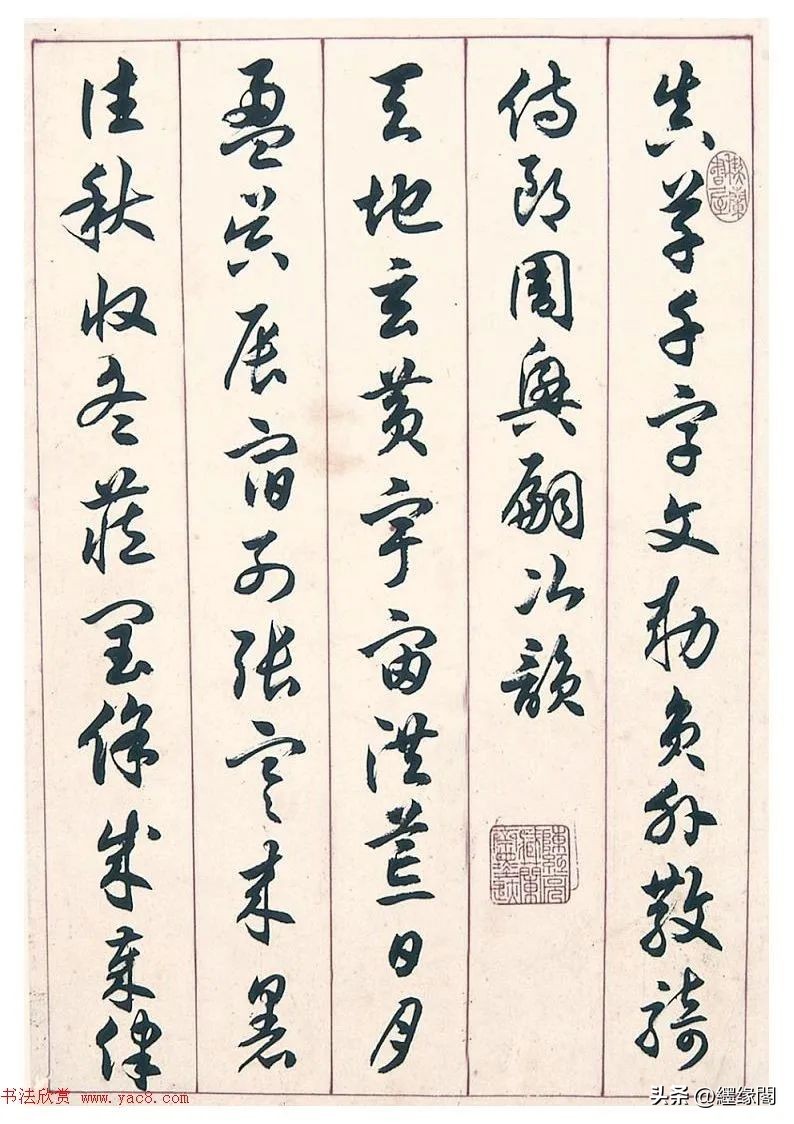 真草千字文敕員外散騎
侍郎周興嗣次韻
天地玄黃宇宙洪荒日月
盈昃辰宿列張寒來暑
往秋收冬藏閏餘成歲律
书法欣赏 www.yac8.com
头条